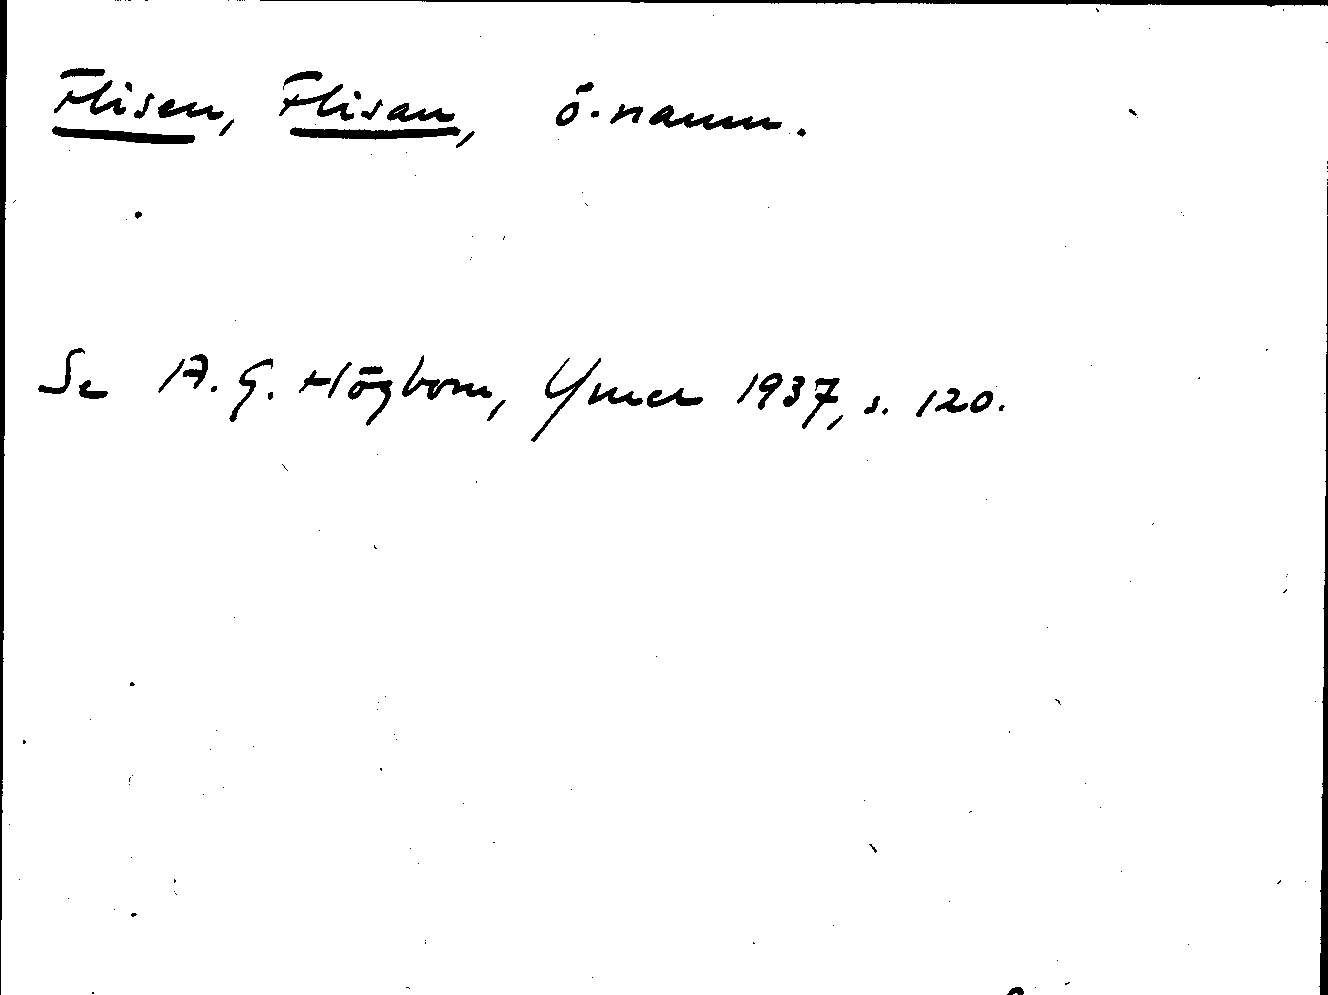 Flisen, Flisan, ö-namn.
Se A. G. Högbom, Ymer 1937, s. 120.